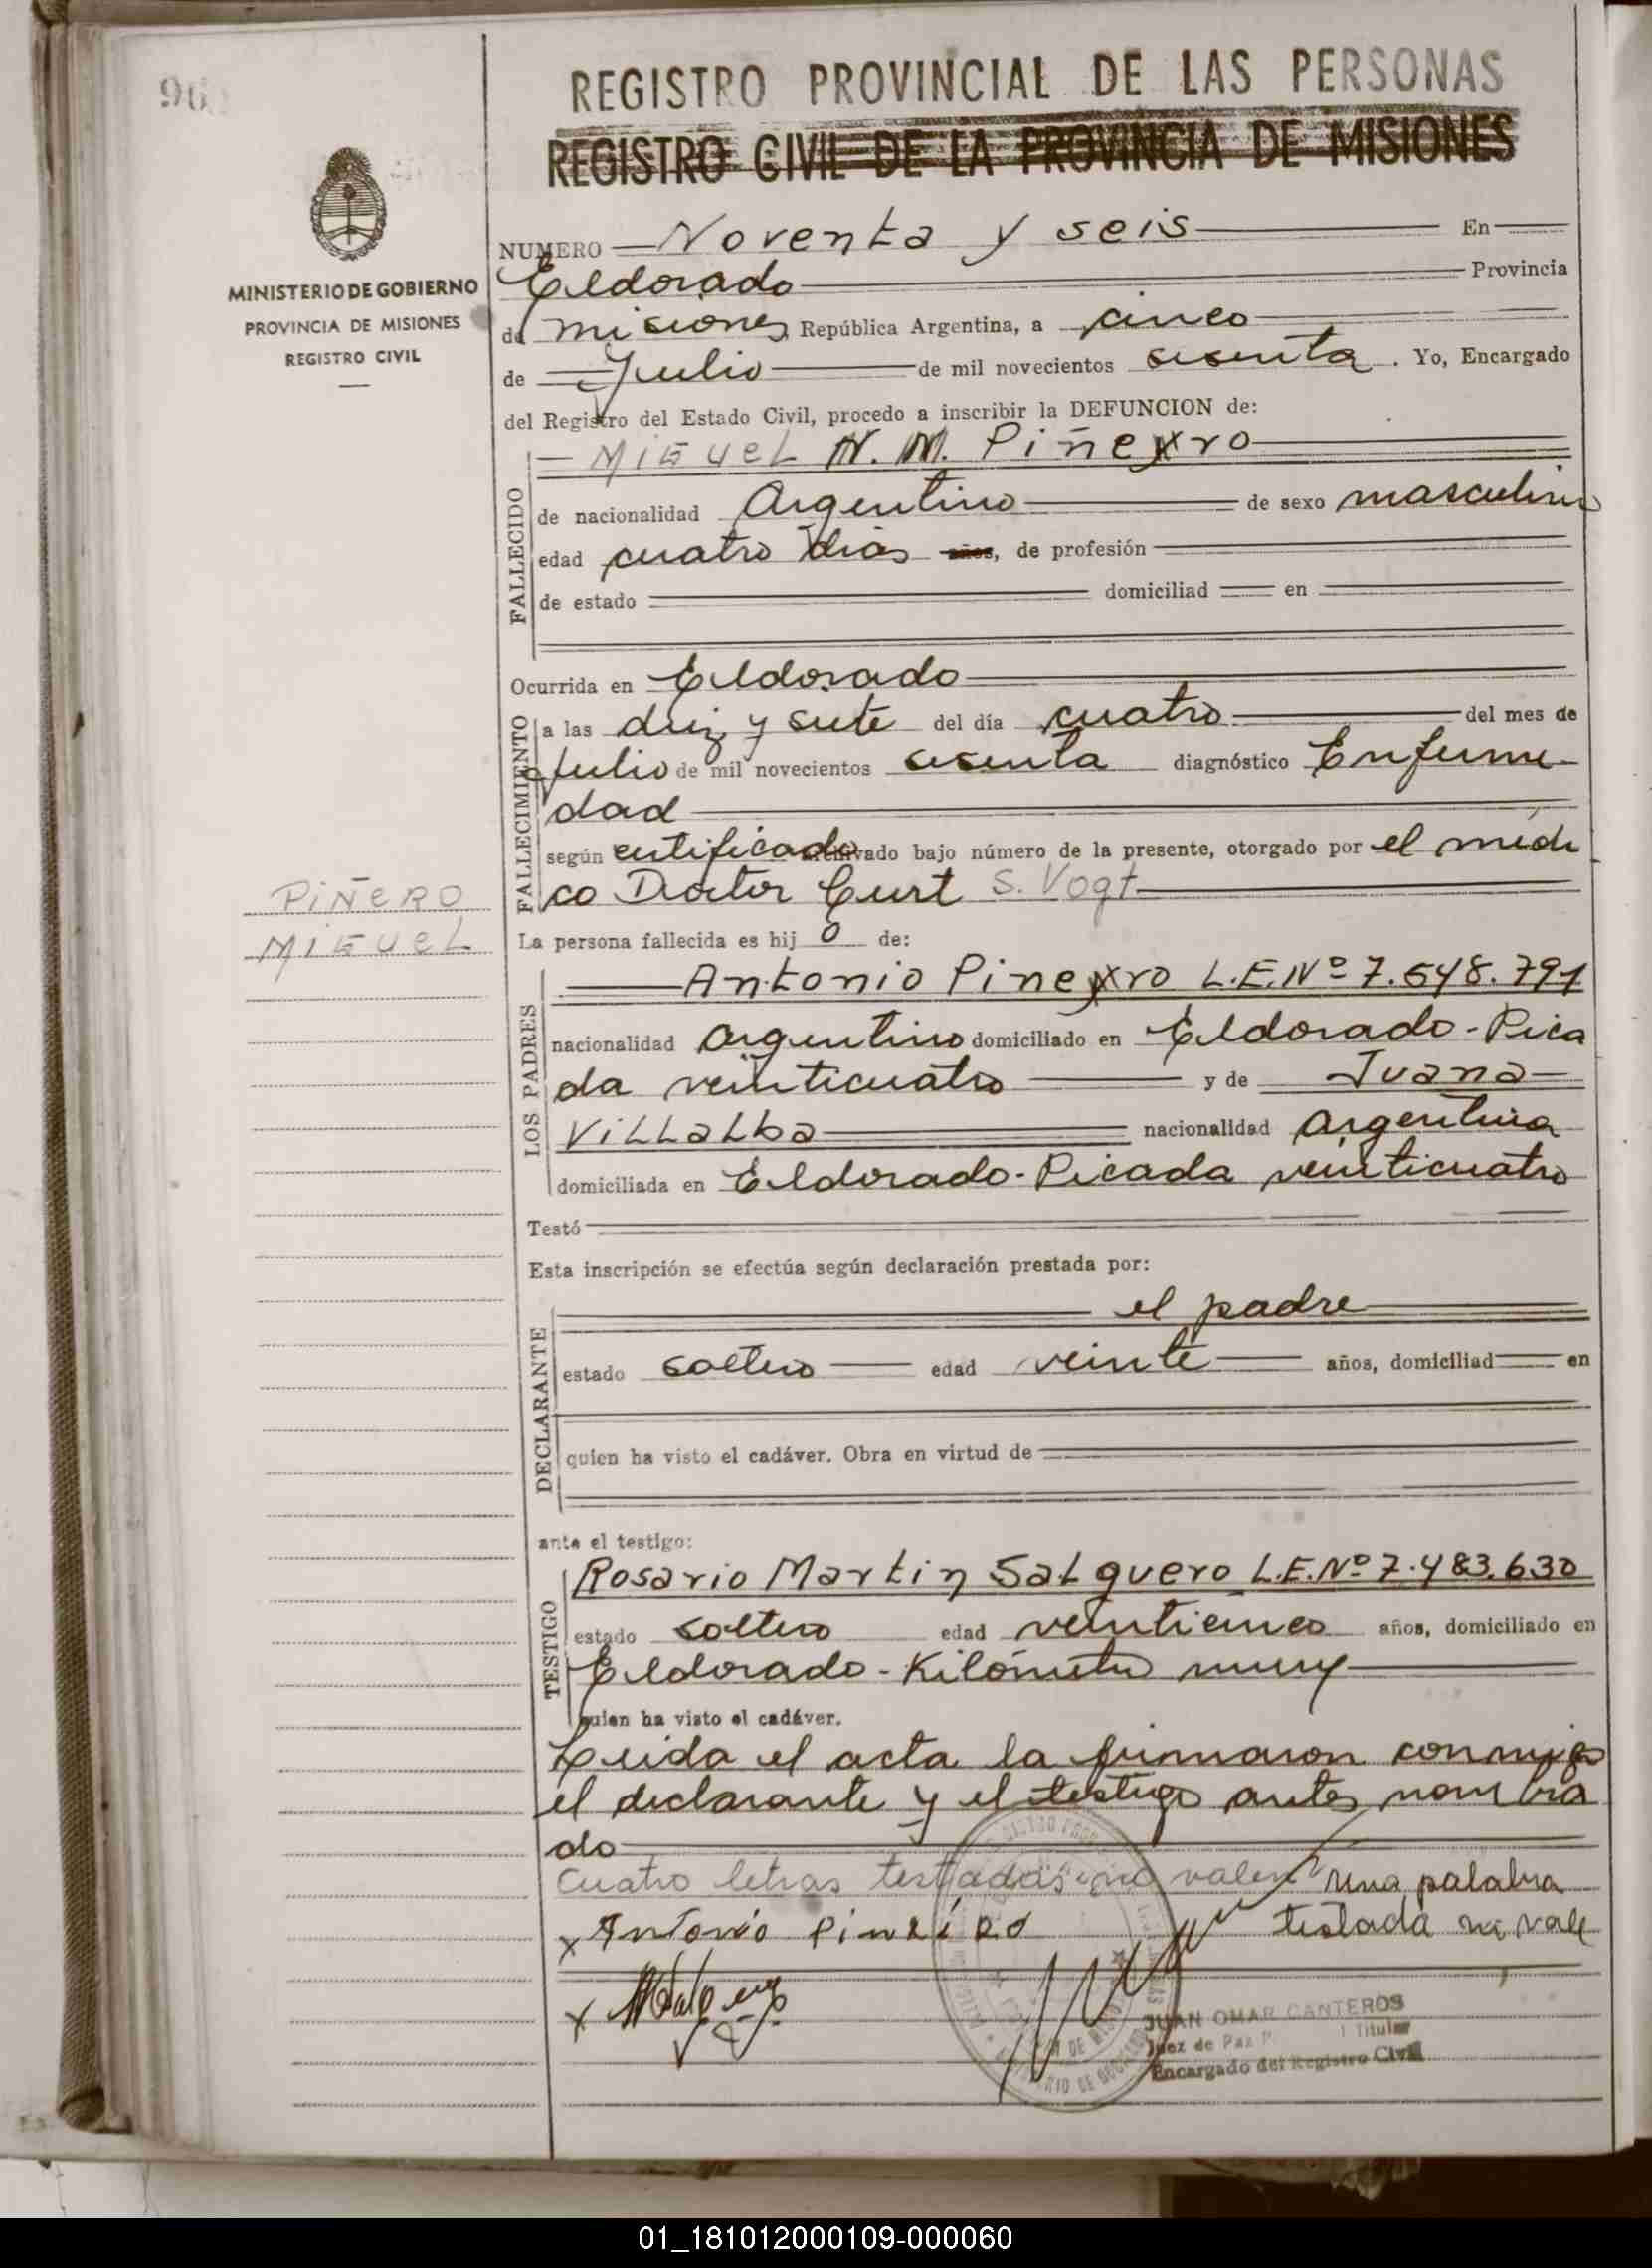 96
REGISTRO PROVINCIAL DE LAS PERSONAS
REGISTRO CIVIL DE LA PROVINCIA DE MISIONES
MINISTERIO DE GOBIERNO
PROVINCIA DE MISIONES
REGISTRO CIVIL
NUMERO Noventa y seis En
Eldorado Provincia
de Misiones, República Argentina, a cinco
de Julio de mil novecientos sesenta. Yo, Encargado
del Registro del Estado Civil, procedo a inscribir la DEFUNCION de:
FALLECIDO
MIGUEL N. M. Piñexro
de nacionalidad Argentino de sexo masculino
edad cuatro dias años, de profesión
de estado domiciliad en
Ocurrida en Eldorado
FALLECIMIENTO
a las diez y siete del día cuatro del mes de
Julio de mil novecientos sesenta diagnóstico Enferme-
dad
según certificado archivado bajo número de la presente, otorgado por el médi
co Doctor Curt S. Vogt
PIÑERO
MIGUEL
La persona fallecida es hij o de:
LOS PADRES
Antonio Pinexro L.E.Nº 7.548.791
nacionalidad argentino domiciliado en Eldorado-Pica
da veinticuatro y de Juana
Villalba nacionalidad argentina
domiciliada en Eldorado-Picada veinticuatro
Testó
Esta inscripción se efectúa según declaración prestada por:
DECLARANTE
el padre
estado soltero edad veinte años, domiciliad en
quien ha visto el cadáver. Obra en virtud de
ante el testigo:
TESTIGO
Rosario Martin Salguero L.E.Nº 7.483.630
estado soltero edad veinticinco años, domiciliado en
Eldorado-Kilómetro nueve
quien ha visto el cadáver.
Leida el acta la firmaron conmigo
el declarante y el testigo antes nombra
do
Cuatro letras testadas no valen Una palabra
testada no vale
x Antonio Pineiro
x
JUAN OMAR CANTEROS
Juez de Paz Titular
Encargado del Registro Civil
01_181012000109-000060